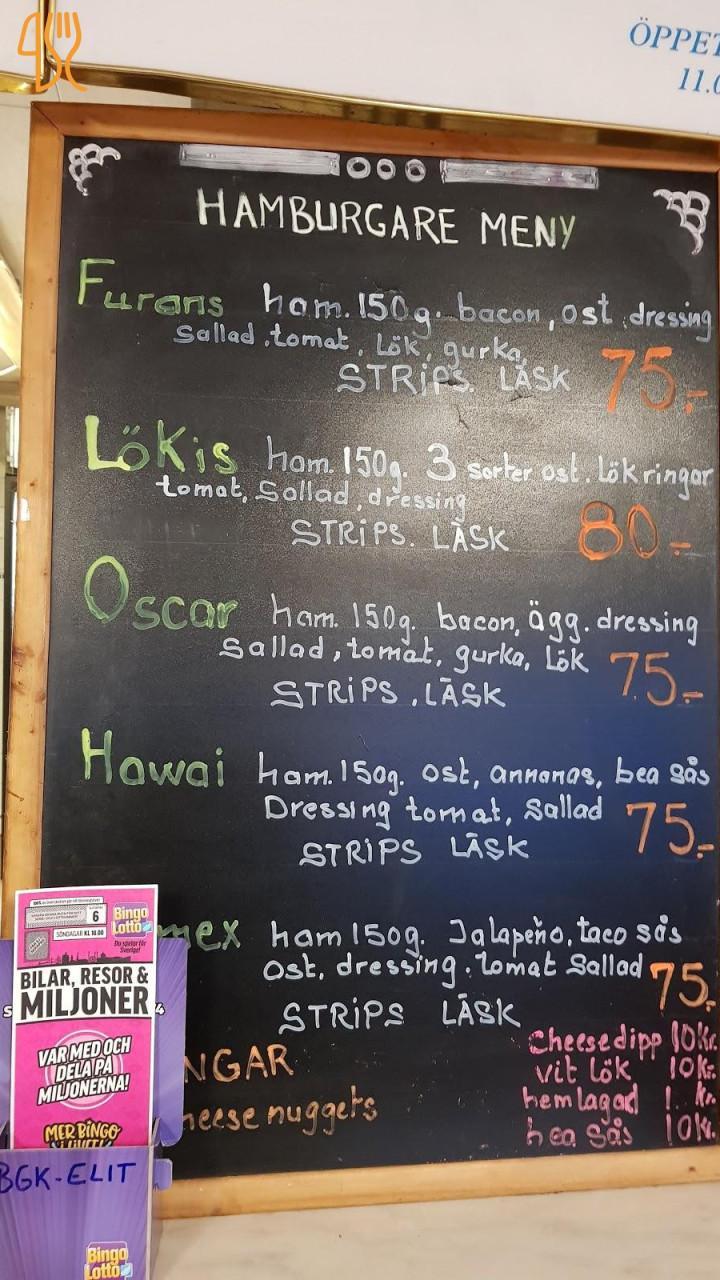 ÖPPET
11.0
HAMBURGARE MENY
Furans ham. 150g. bacon, ost dressing
Sallad, tomat, Lök, gurka,
STRIPS. LÄSK 75.-
LÖKis ham. 150g. 3 sorter ost. Lök ringar
tomat, Sallad, dressing
STRIPS. LÄSK 80.-
Oscar ham. 150g. bacon, ägg. dressing
Sallad, tomat, gurka, Lök
STRIPS, LÄSK 75.-
Hawai ham. 150g. ost, annanas, bea sås
Dressing tomat, Sallad
STRIPS LÄSK 75.-
mex ham 150g. Jalapeño, taco sås
Ost, dressing. tomat Sallad
STRIPS LÄSK 75.
NGAR
heese nuggets
Cheesedipp 10Kr.
vit lök 10Kr.
hemlagad 1 kr.
bea sås 10Kr.
6
Bingo
Lotto
SÖNDAGAR KL 18.00
BILAR, RESOR &
MILJONER
VAR MED OCH
DELA PÅ
MILJONERNA!
MER BINGO
I LIVET!
BGK-ELIT
Bingo
Lotto